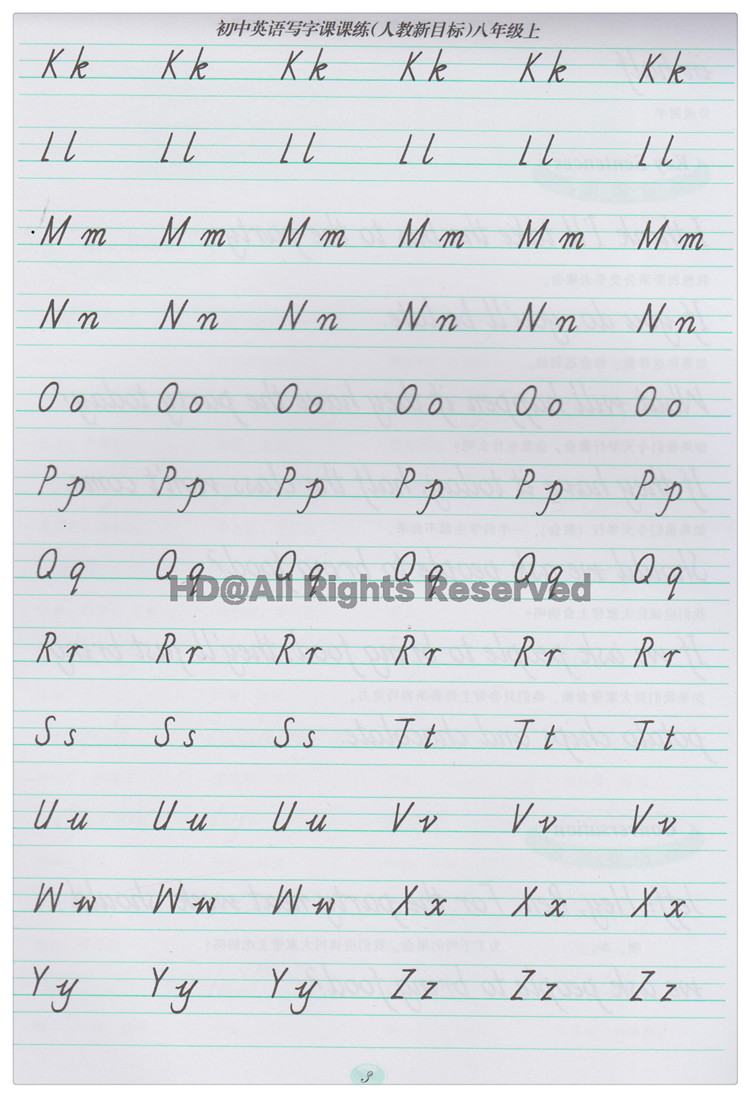 初中英语写字课课练(人教新目标)八年级上
Kk Kk Kk Kk Kk Kk
Ll Ll Ll Ll Ll Ll
Mm Mm Mm Mm Mm Mm
Nn Nn Nn Nn Nn Nn
Oo Oo Oo Oo Oo Oo
Pp Pp Pp Pp Pp Pp
Qq Qq Qq Qq Qq Qq
HD@All Rights Reserved
Rr Rr Rr Rr Rr Rr
Ss Ss Ss Tt Tt Tt
Uu Uu Uu Vv Vv Vv
Ww Ww Ww Xx Xx Xx
Yy Yy Yy Zz Zz Zz
3